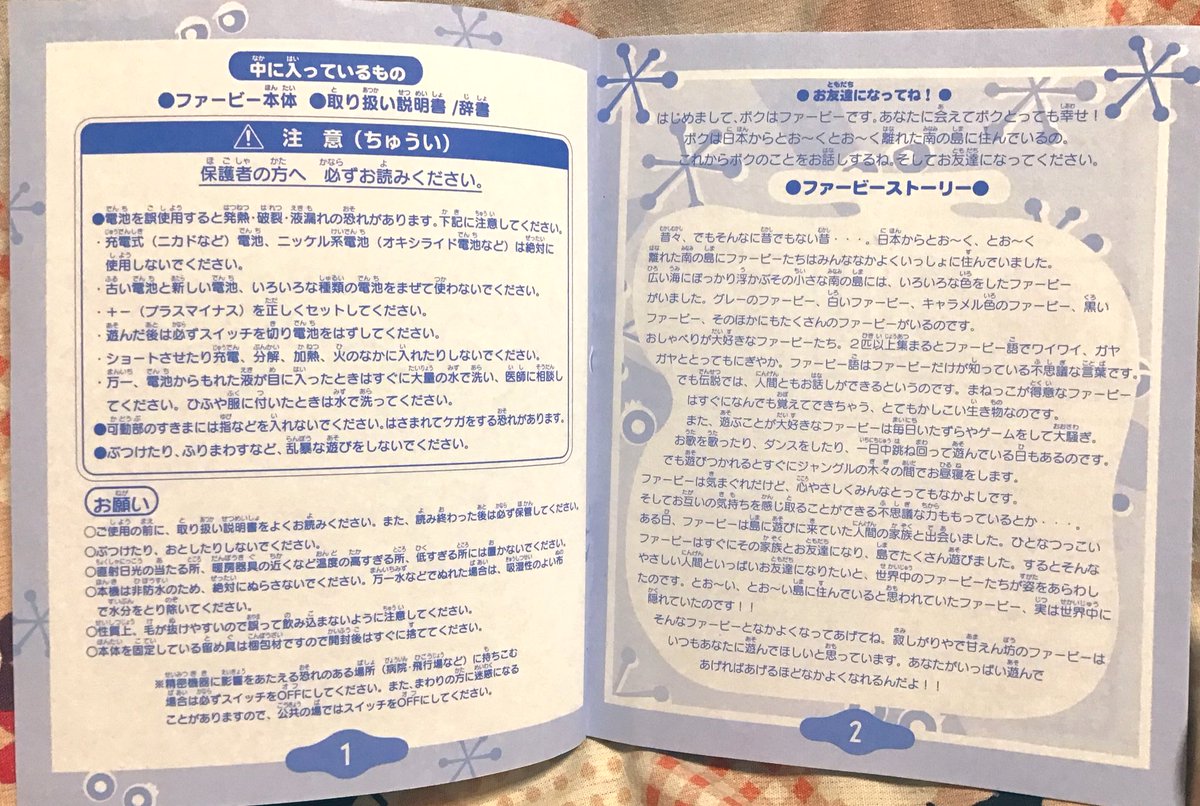 中に入っているもの
●ファービー本体 ●取り扱い説明書/辞書
注 意(ちゅうい)
保護者の方へ 必ずお読みください。
●電池を誤使用すると発熱・破裂・液漏れの恐れがあります。下記に注意してください。
・充電式(ニカドなど)電池、ニッケル系電池(オキシライド電池など)は絶対に
使用しないでください。
・古い電池と新しい電池、いろいろな種類の電池をまぜて使わないでください。
・+-(プラスマイナス)を正しくセットしてください。
・遊んだ後は必ずスイッチを切り電池をはずしてください。
・ショートさせたり充電、分解、加熱、火のなかに入れたりしないでください。
・万一、電池からもれた液が目に入ったときはすぐに大量の水で洗い、医師に相談し
てください。ひふや服に付いたときは水で洗ってください。
●可動部のすきまには指などを入れないでください。はさまれてケガをする恐れがあります。
●ぶつけたり、ふりまわすなど、乱暴な遊びをしないでください。
お願い
○ご使用の前に、取り扱い説明書をよくお読みください。また、読み終わった後は必ず保管してください。
○ぶつけたり、おとしたりしないでください。
○直射日光の当たる所、暖房器具の近くなど温度の高すぎる所、低すぎる所には置かないでください。
○本機は非防水のため、絶対にぬらさないでください。万一水などでぬれた場合は、吸湿性のよい布
で水分をとり除いてください。
○性質上、毛が抜けやすいので誤って飲み込まないように注意してください。
○本体を固定している留め具は梱包材ですので開封後はすぐに捨ててください。
※精密機器に影響をあたえる恐れのある場所(病院・飛行場など)に持ちこむ
場合は必ずスイッチをOFFにしてください。また、まわりの方に迷惑になる
ことがありますので、公共の場ではスイッチをOFFにしてください。
1
● お友達になってね! ●
はじめまして、ボクはファービーです。あなたに会えてボクとっても幸せ!
ボクは日本からとお〜くとお〜く離れた南の島に住んでいるの。
これからボクのことをお話しするね。そしてお友達になってください。
●ファービーストーリー●
昔々、でもそんなに昔でない昔・・・。日本からとお〜く、とお〜く
離れた南の島にファービーたちはみんななかよくいっしょに住んでいました。
広い海にぽっかり浮かぶその小さな南の島には、いろいろな色をしたファービー
がいました。グレーのファービー、白いファービー、キャラメル色のファービー、黒い
ファービー、そのほかにもたくさんのファービーがいるのです。
おしゃべりが大好きなファービーたち。2匹以上集まるとファービー語でワイワイ、ガヤ
ガヤととってもにぎやか。ファービー語はファービーだけが知っている不思議な言葉です。
でも伝説では、人間ともお話しができるというのです。まねっこが得意なファービー
はすぐになんでも覚えてできちゃう、とてもかしこい生き物なのです。
また、遊ぶことが大好きなファービーは毎日いたずらやゲームをして大騒ぎ。
お歌を歌ったり、ダンスをしたり、一日中跳ね回って遊んでいる日もあるのです。
でも遊びつかれるとすぐにジャングルの木々の間でお昼寝をします。
ファービーは気まぐれだけど、心やさしくみんなとってもなかよしです。
そしてお互いの気持ちを感じ取ることができる不思議な力ももっているとか・・・。
ある日、ファービーは島に遊びに来ていた人間の家族と出会いました。ひとなつっこい
ファービーはすぐにその家族とお友達になり、島でたくさん遊びました。するとそんな
やさしい人間といっぱいお友達になりたいと、世界中のファービーたちが姿をあらわし
たのです。とお〜い、とお〜い島に住んでいると思われていたファービー、実は世界中に
隠れていたのです!!
そんなファービーとなかよくなってあげてね。寂しがりやで甘えん坊のファービーは
いつもあなたに遊んでほしいと思っています。あなたがいっぱい遊んで
あげればあげるほどなかよくなれるんだよ!!
2